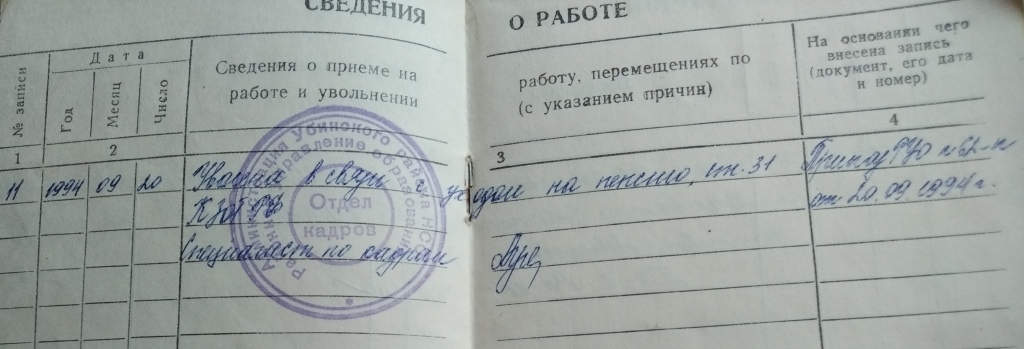 СВЕДЕНИЯ О РАБОТЕ
№ записи
Дата
Год
Месяц
Число
Сведения о приеме на
работе и увольнении
работу, перемещениях по
(с указанием причин)
На основании чего
внесена запись
(документ, его дата
и номер)
1 2 3 4
11 1994 09 20 Уволена в связи с уходом на пенсию, ст. 31 Приказ РУО №62-к
КЗоТ РФ от 20.09.1994г.
Специалист по кадрам
Администрация Убинского района НСО
управление образования
Отдел
кадров